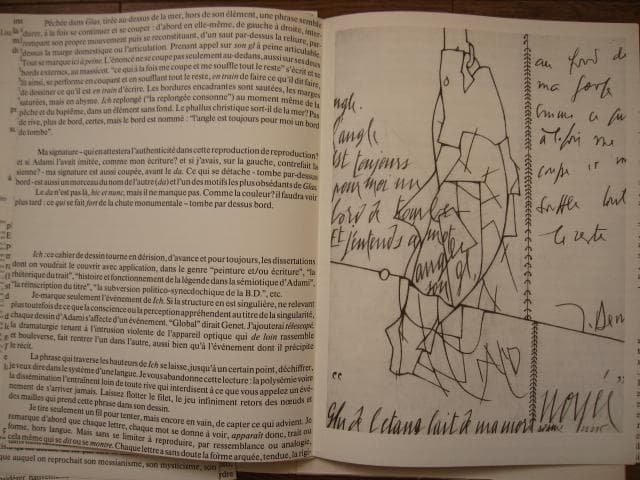 Pêchée dans Glas, tirée au-dessus de la mer, hors de son élément, une phrase semble
durée, à la fois se continuer et se couper : d'abord en elle-même, de gauche à droite, inter-
rompant son propre mouvement puis se reconstituant, d'un saut par-dessus la reliure, par-
dessus la marge domestique ou l'articulation. Prenant appel sur son gl à peine articulable.
Tout se marque ici à peine. L'énoncé ne se coupe pas seulement au-dedans, aussi sur ses deux
bords externes, au massicot. "ce qui à la fois me coupe et me souffle tout le reste" s'écrit et se
lit ainsi, se performe en coupant et en soufflant tout le reste, en train de faire ce qu'il dit faire,
de dessiner ce qu'il est en train d'écrire. Les bordures encadrantes sont sautées, les marges
saturées, mais en abyme. Ich replongé ("la replongée consonne") au moment même de la
pêche et du baptême, dans un élément sans fond. Le phallus christique sort-il de la mer? Pas
de rive, plus de bord, certes, mais le bord est nommé : "l'angle est toujours pour moi un bord
de tombe".
Ma signature - qui en attestera l'authenticité dans cette reproduction de reproduction?
et si Adami l'avait imitée, comme mon écriture? et si j'avais, sur la gauche, contrefait la
sienne? - ma signature est aussi coupée, avant le da. Ce qui se détache - tombe par-dessus
bord - est aussi un morceau du nom de l'autre (da) et l'un des motifs les plus obsédants de Glas.
Le da n'est pas là, hic et nunc, mais il ne manque pas. Comme la couleur? il faudra voir
plus tard : ce qui se fait fort de la chute monumentale - tombe par dessus bord.
Ich : ce cahier de dessin tourne en dérision, d'avance et pour toujours, les dissertations
dont on voudrait le couvrir avec application, dans le genre "peinture et/ou écriture", "la
rhétorique du trait", "histoire et fonctionnement de la légende dans la sémiotique d'Adami",
"la réinscription du titre", "la subversion politico-synecdochique de la B.D.", etc.
Je marque seulement l'événement de Ich. Si la structure en est singulière, ne relevant
plus toutefois de ce que la conscience ou la perception appréhendent au titre de la singularité,
chaque dessin d'Adami s'affecte d'un événement. "Global" dirait Genet. J'ajouterai télescopé.
la dramaturgie tenant à l'intrusion violente de l'appareil optique qui de loin rassemble
et bouleverse, fait rentrer l'un dans l'autre, aussi bien qu'à l'événement dont il précipite
le récit.
La phrase qui traverse les hauteurs de Ich se laisse, jusqu'à un certain point, déchiffrer,
je veux dire dans le système d'une langue. Je vous abandonne cette lecture : la polysémie voire
la dissémination l'entraînent loin de toute rive qui interdisent à ce que vous appelez un évé-
nement de s'arriver jamais. Laissez flotter le filet, le jeu infiniment retors des nœuds et
des mailles qui prend cette phrase dans son dessin.
Je tire seulement un fil pour tenter, mais encore en vain, de capter ce qui advient. Je
remarque d'abord que chaque lettre, chaque mot se donne à voir, apparaît donc, trait ou
forme, hors langue. Mais sans se limiter à reproduire, par ressemblance ou analogie,
cela même qui se dit ou se montre. Chaque lettre a sans doute la forme arquée, tendue, la rigi-
que auquel on reprochait son messianisme, son mysticisme, son
ngle.
l'angle
est toujours
pour moi un
bord de tombe
Et j'entends ce mot
angle
son gl,
au fond de
ma gorge
comme ce qui
à la fois me
coupe et m
souffle tout
le reste
J. Derri
Glu de l'etang lait de ma mort
noyée